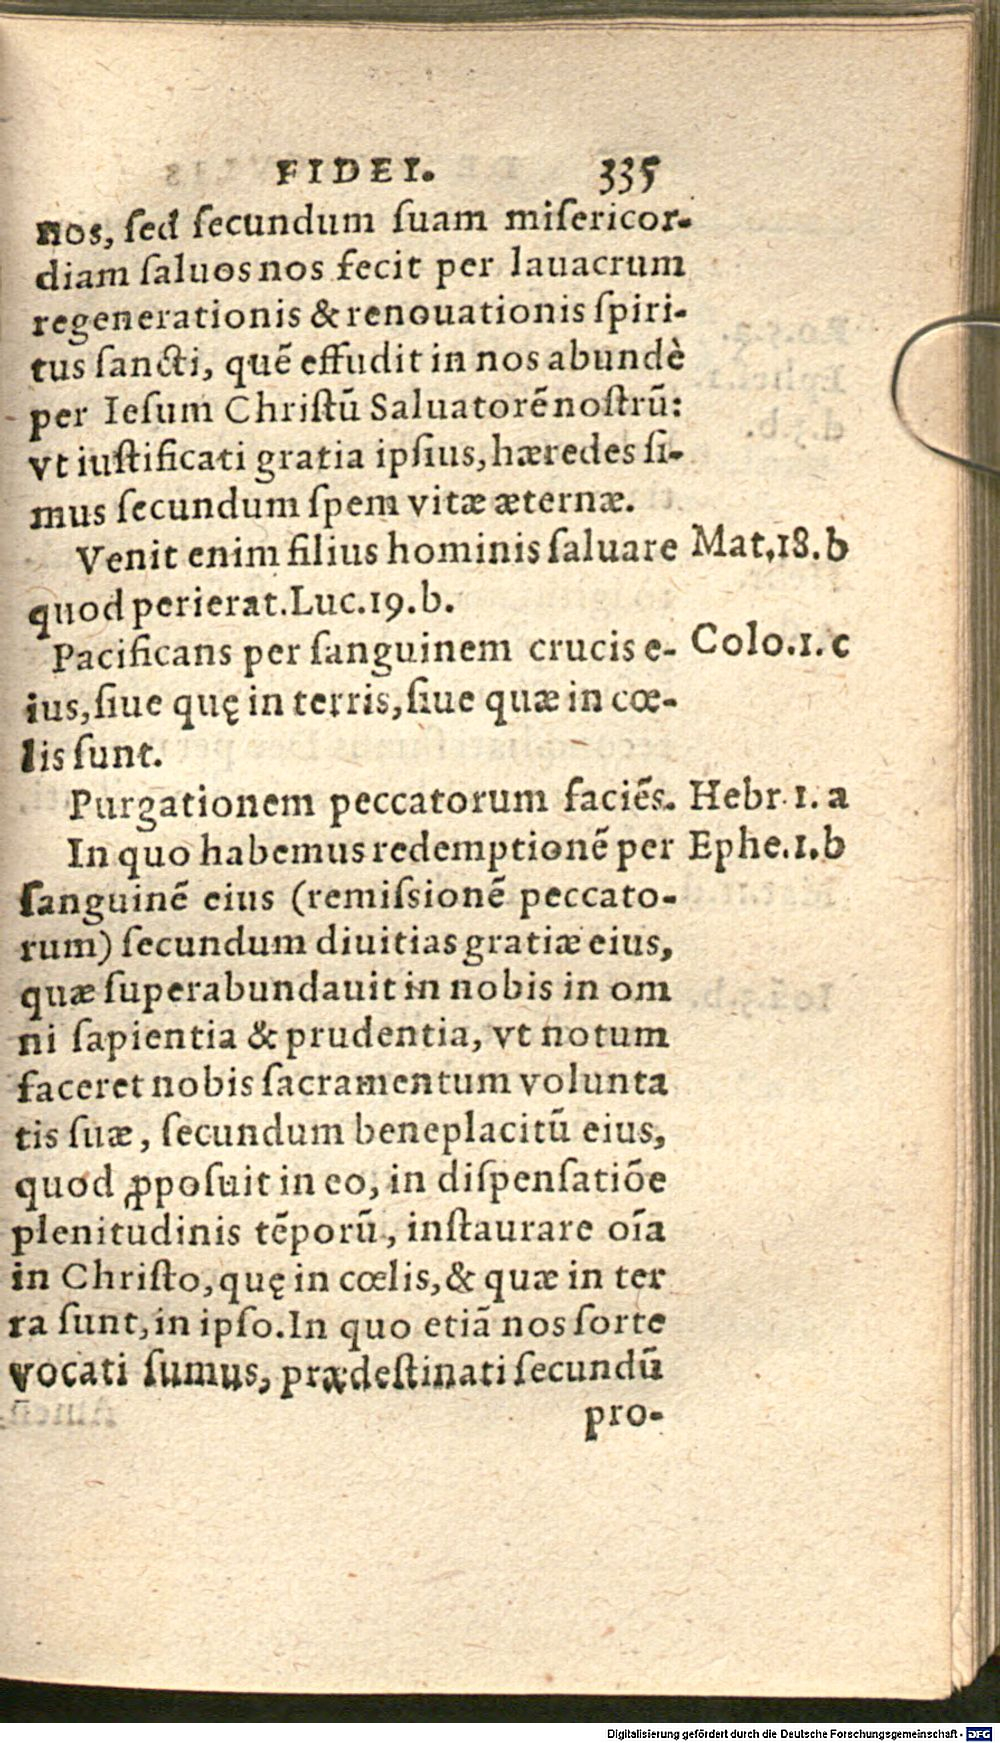 FIDEI. 335
nos, ſed ſecundum ſuam miſericor-
diam ſaluos nos fecit per lauacrum
regenerationis & renouationis ſpiri-
tus ſancti, quē effudit in nos abundè
per Ieſum Chriſtū Saluatorē noſtrū:
vt iuſtificati gratia ipſius, hæredes ſi-
mus ſecundum ſpem vitæ æternæ.
Venit enim filius hominis ſaluare Mat.18.b
quod perierat. Luc.19.b.
Pacificans per ſanguinem crucis e- Colo.1.c
ius, ſiue quę in terris, ſiue quæ in cœ-
lis ſunt.
Purgationem peccatorum faciēs. Hebr.1.a
In quo habemus redemptionē per Ephe.1.b
ſanguinē eius (remiſsionē peccato-
rum) ſecundum diuitias gratiæ eius,
quæ ſuperabundauit in nobis in om
ni ſapientia & prudentia, vt notum
faceret nobis ſacramentum volunta
tis ſuæ, ſecundum beneplacitū eius,
quod ꝓpoſuit in eo, in diſpenſatiōe
plenitudinis tēporū, inſtaurare oīa
in Chriſto, quę in cœlis, & quæ in ter
ra ſunt, in ipſo. In quo etiā nos ſorte
vocati ſumus, prædeſtinati ſecundū
pro-
Digitalisierung gefördert durch die Deutsche Forschungsgemeinschaft - DFG